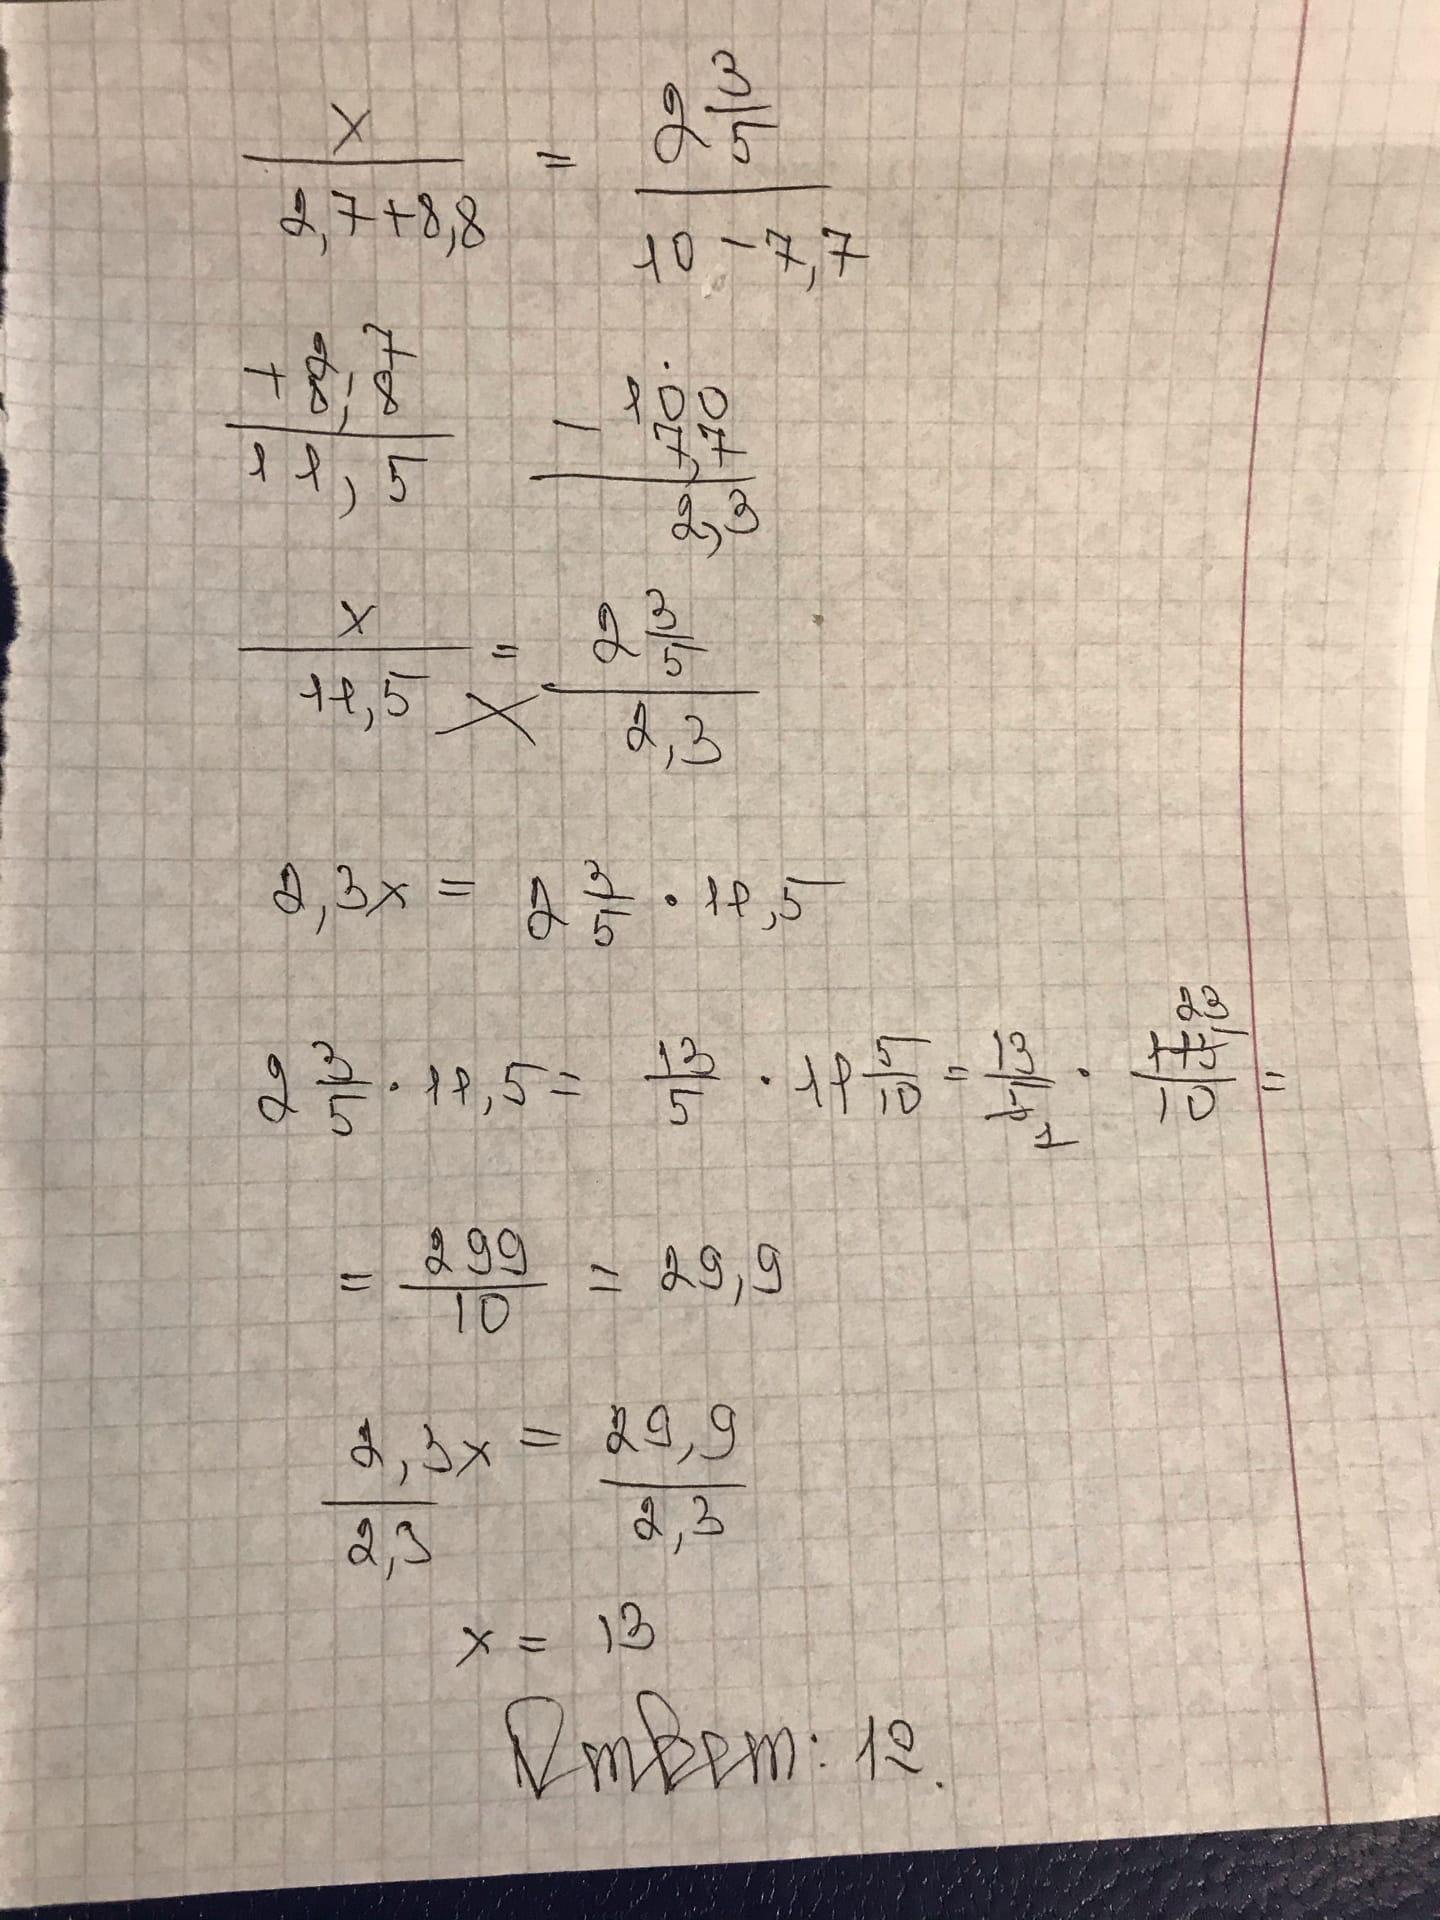 x / 2,7+8,8 = 2 3/5 / 10-7,7
+ 2,7 - 10,0
8,8 7,7
11,5 2,3
x / 11,5 = 2 3/5 / 2,3
2,3x = 2 3/5 · 11,5
2 3/5 · 11,5 = 13/5 · 11 5/10 = 13/5 · 115/10 =
1 23
= 299/10 = 29,9
2,3x / 2,3 = 29,9 / 2,3
x = 13
Ответ: 12.